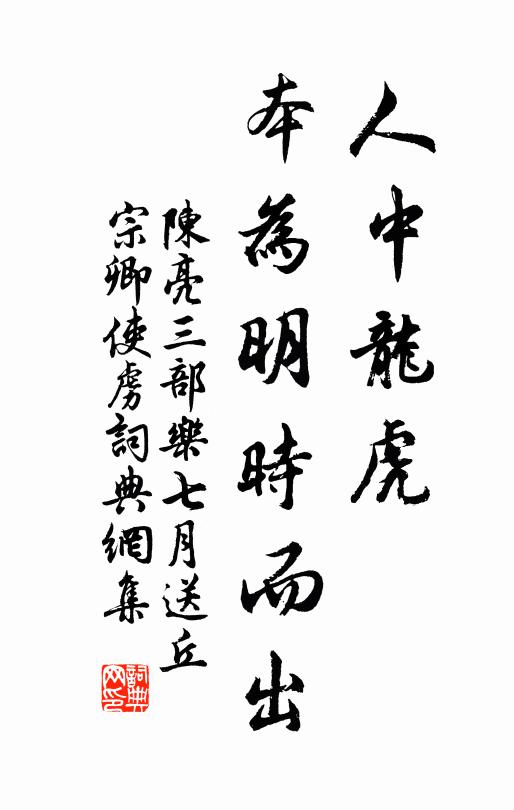 人中龍虎
本為明時而出
陳亮三部樂七月送丘
宗卿使虜詞典網集
詞典網印